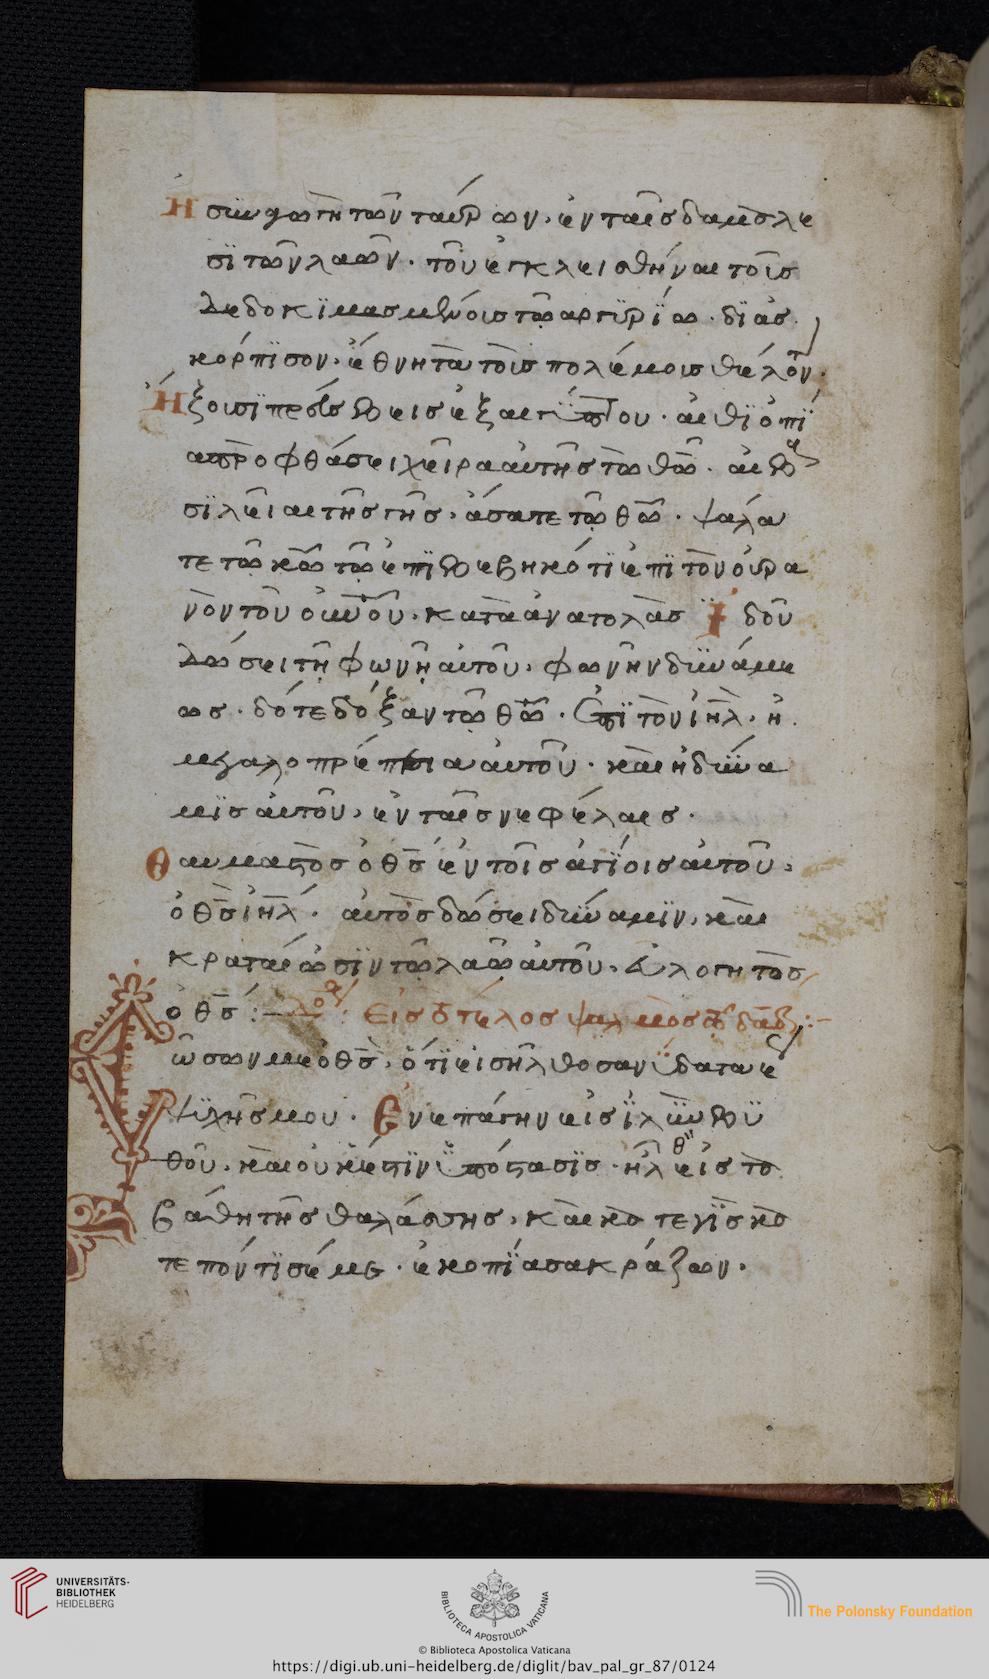 Ἡ σὕναγωγὴ τῶν ταύρων· ἐν ταῖς δαμάλε
σϊ τῶν λαῶν· τοῦ ἐγκλεισθῆναι τοῖς
δεδοκϊμασμένοις τῶ αργϋρΐω· δϊάσ
κόρπϊσον· ἔθνη τὰ τοῖς πολέμοις θέλον·
Ἥξουσϊ πρέσβεις ἐξ αιγΰπτου· αιθϊόπϊ
α προφθάσει χεῖρα αὐτῆς τῶ θῶ· αι βα
σϊλεῖαι τῆς γῆς· ἄσατε τῶ θῶ· ψαλά
τε τῶ κῶ τῶ ἐπϊβεβηκότϊ ἐπϊ τὸν οὐρα
νὸν τοῦ οὐνοῦ· κατὰ ἀνατολὰς Ϊδοῦ
δώσει τῆ φωνῆ αὐτοῦ· φωνὴν δϋνάμε
ως· δότε δόξαν τῶ θῶ· Ἐπϊ τὸν ἰῆλ· ἡ
μεγαλοπρέπεια αὐτοῦ· καὶ ἡ δΰνα
μϊς αὐτοῦ· ἐν ταῖς νεφέλαις·
Θαυμαστὸς ὁ θς ἐν τοῖς ἁγΐοις αὐτοῦ·
ὁ θς ἰηλ· αὐτὸς δώσει δΰναμϊν· καὶ
κραταίωσϊν τῶ λαῶ αὐτοῦ· εὐλογητὸς
ὁ θς :— Εἰς τὸ τέλος ψαλμὸς τῶ δαδ :—
Σῶσων με ὁ θς· ὅτϊ εἰσῆλθοσαν ὕδατα ἕ
ως ψϋχῆς μου· Ἐνεπάγην εἰς ϊλϋν βϋ
θοῦ· καὶ οὐκ ἔστϊν ϋπόστασϊς· ἦλθον εἰς τὰ
βάθη τῆς θαλάσσης· καὶ καταιγΐς κα
τεπόντϊσέ με· ἐκοπΐασα κράζων·
UNIVERSITÄTS-
BIBLIOTHEK
HEIDELBERG
BIBLIOTECA APOSTOLICA VATICANA
The Polonsky Foundation
© Biblioteca Apostolica Vaticana
https://digi.ub.uni-heidelberg.de/diglit/bav_pal_gr_87/0124